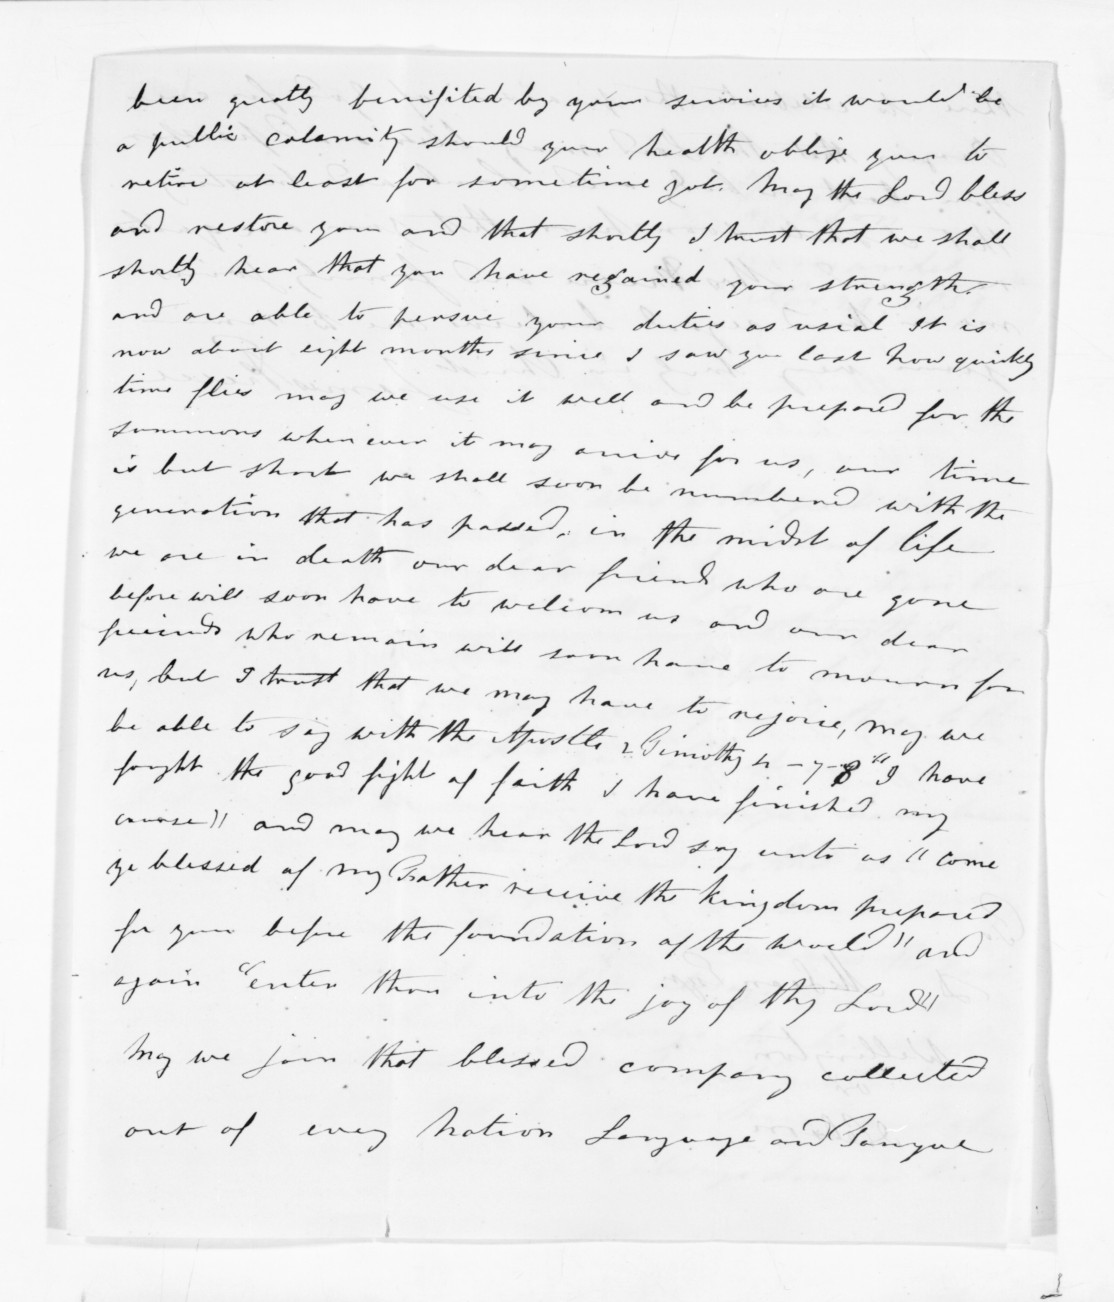 been greatly benifited by your services it would be
a public calamity should your health oblige you to
retire at least for sometime yet. May the Lord bless
and restore you and that shortly I trust that we shall
shortly hear that you have regained your strength
and are able to persue your duties as usial It is
now about eight months since I saw you last how quickly
time flies may we use it well and be prepared for the
summons when ever it may arive for us, our time
is but short we shall soon be numbered with the
generation that has passed, in the midst of life
we are in death our dear friends who are gone
before will soon have to welcom us and our dear
freinds who remain will soon have to mourn for
us, but I trust that we may have to rejoice, may we
be able to say with the Apostle 2 Timothy 4 - 7-8 "I have
fought the good fight of faith I have finished my
course" and may we hear the Lord say unto us "come
ye blessed of my Father receive the kingdom prepared
for you before the foundation of the world" and
again "enter thou into the joy of thy Lord"
May we join that blessed company collected
out of every Nation Language and Tongue